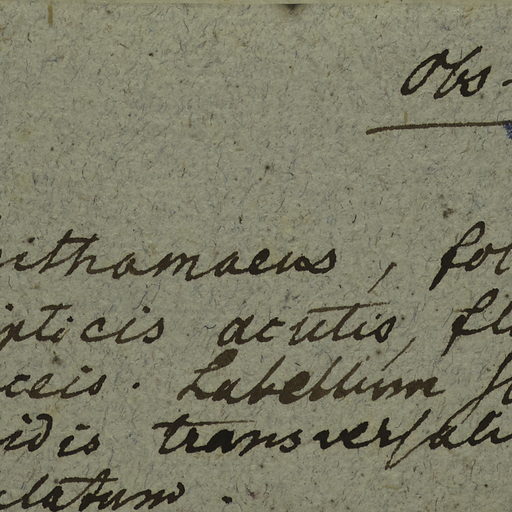 Obs-
ithamaeus, fol
pticis acutis, fl
ceis. Labellum
idis transversali
latum.